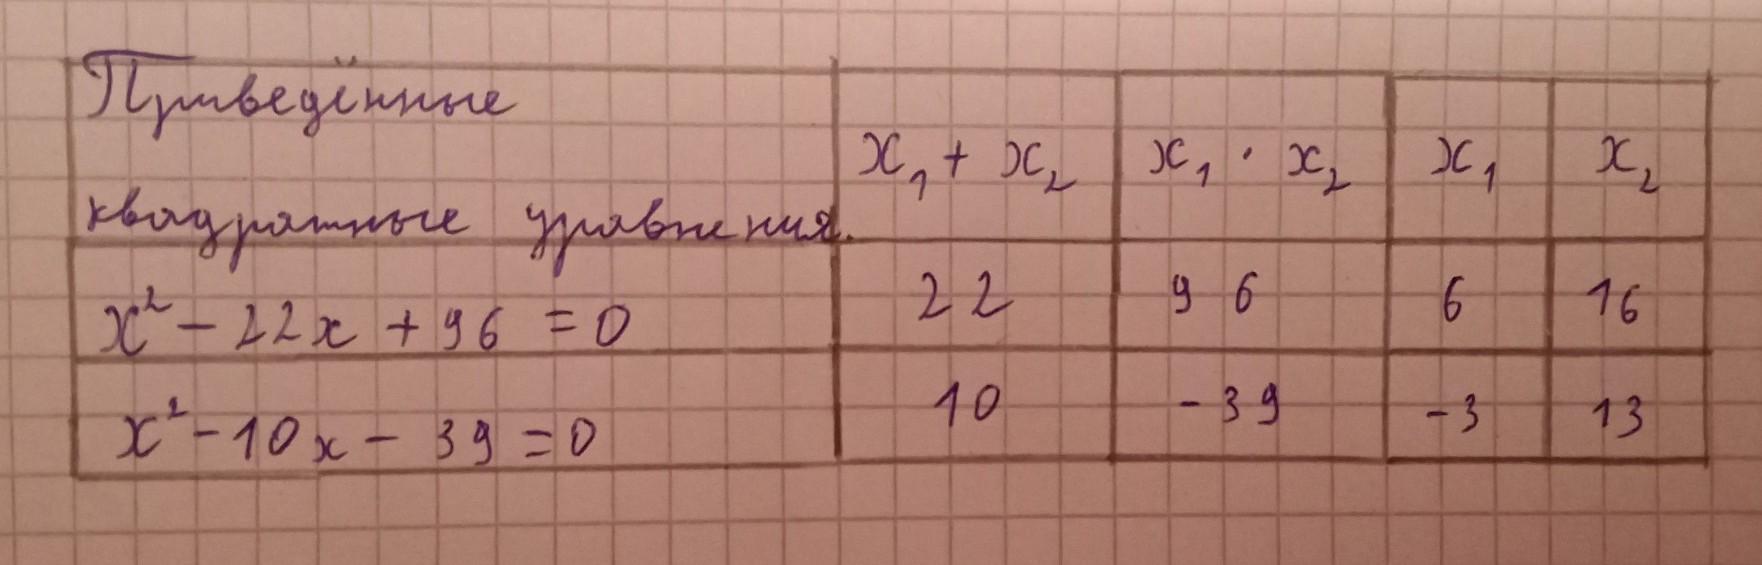 Приведённые
квадратные уравнения.
x₁ + x₂ x₁ · x₂ x₁ x₂
x² - 22x + 96 = 0 22 96 6 16
x² - 10x - 39 = 0 10 -39 -3 13